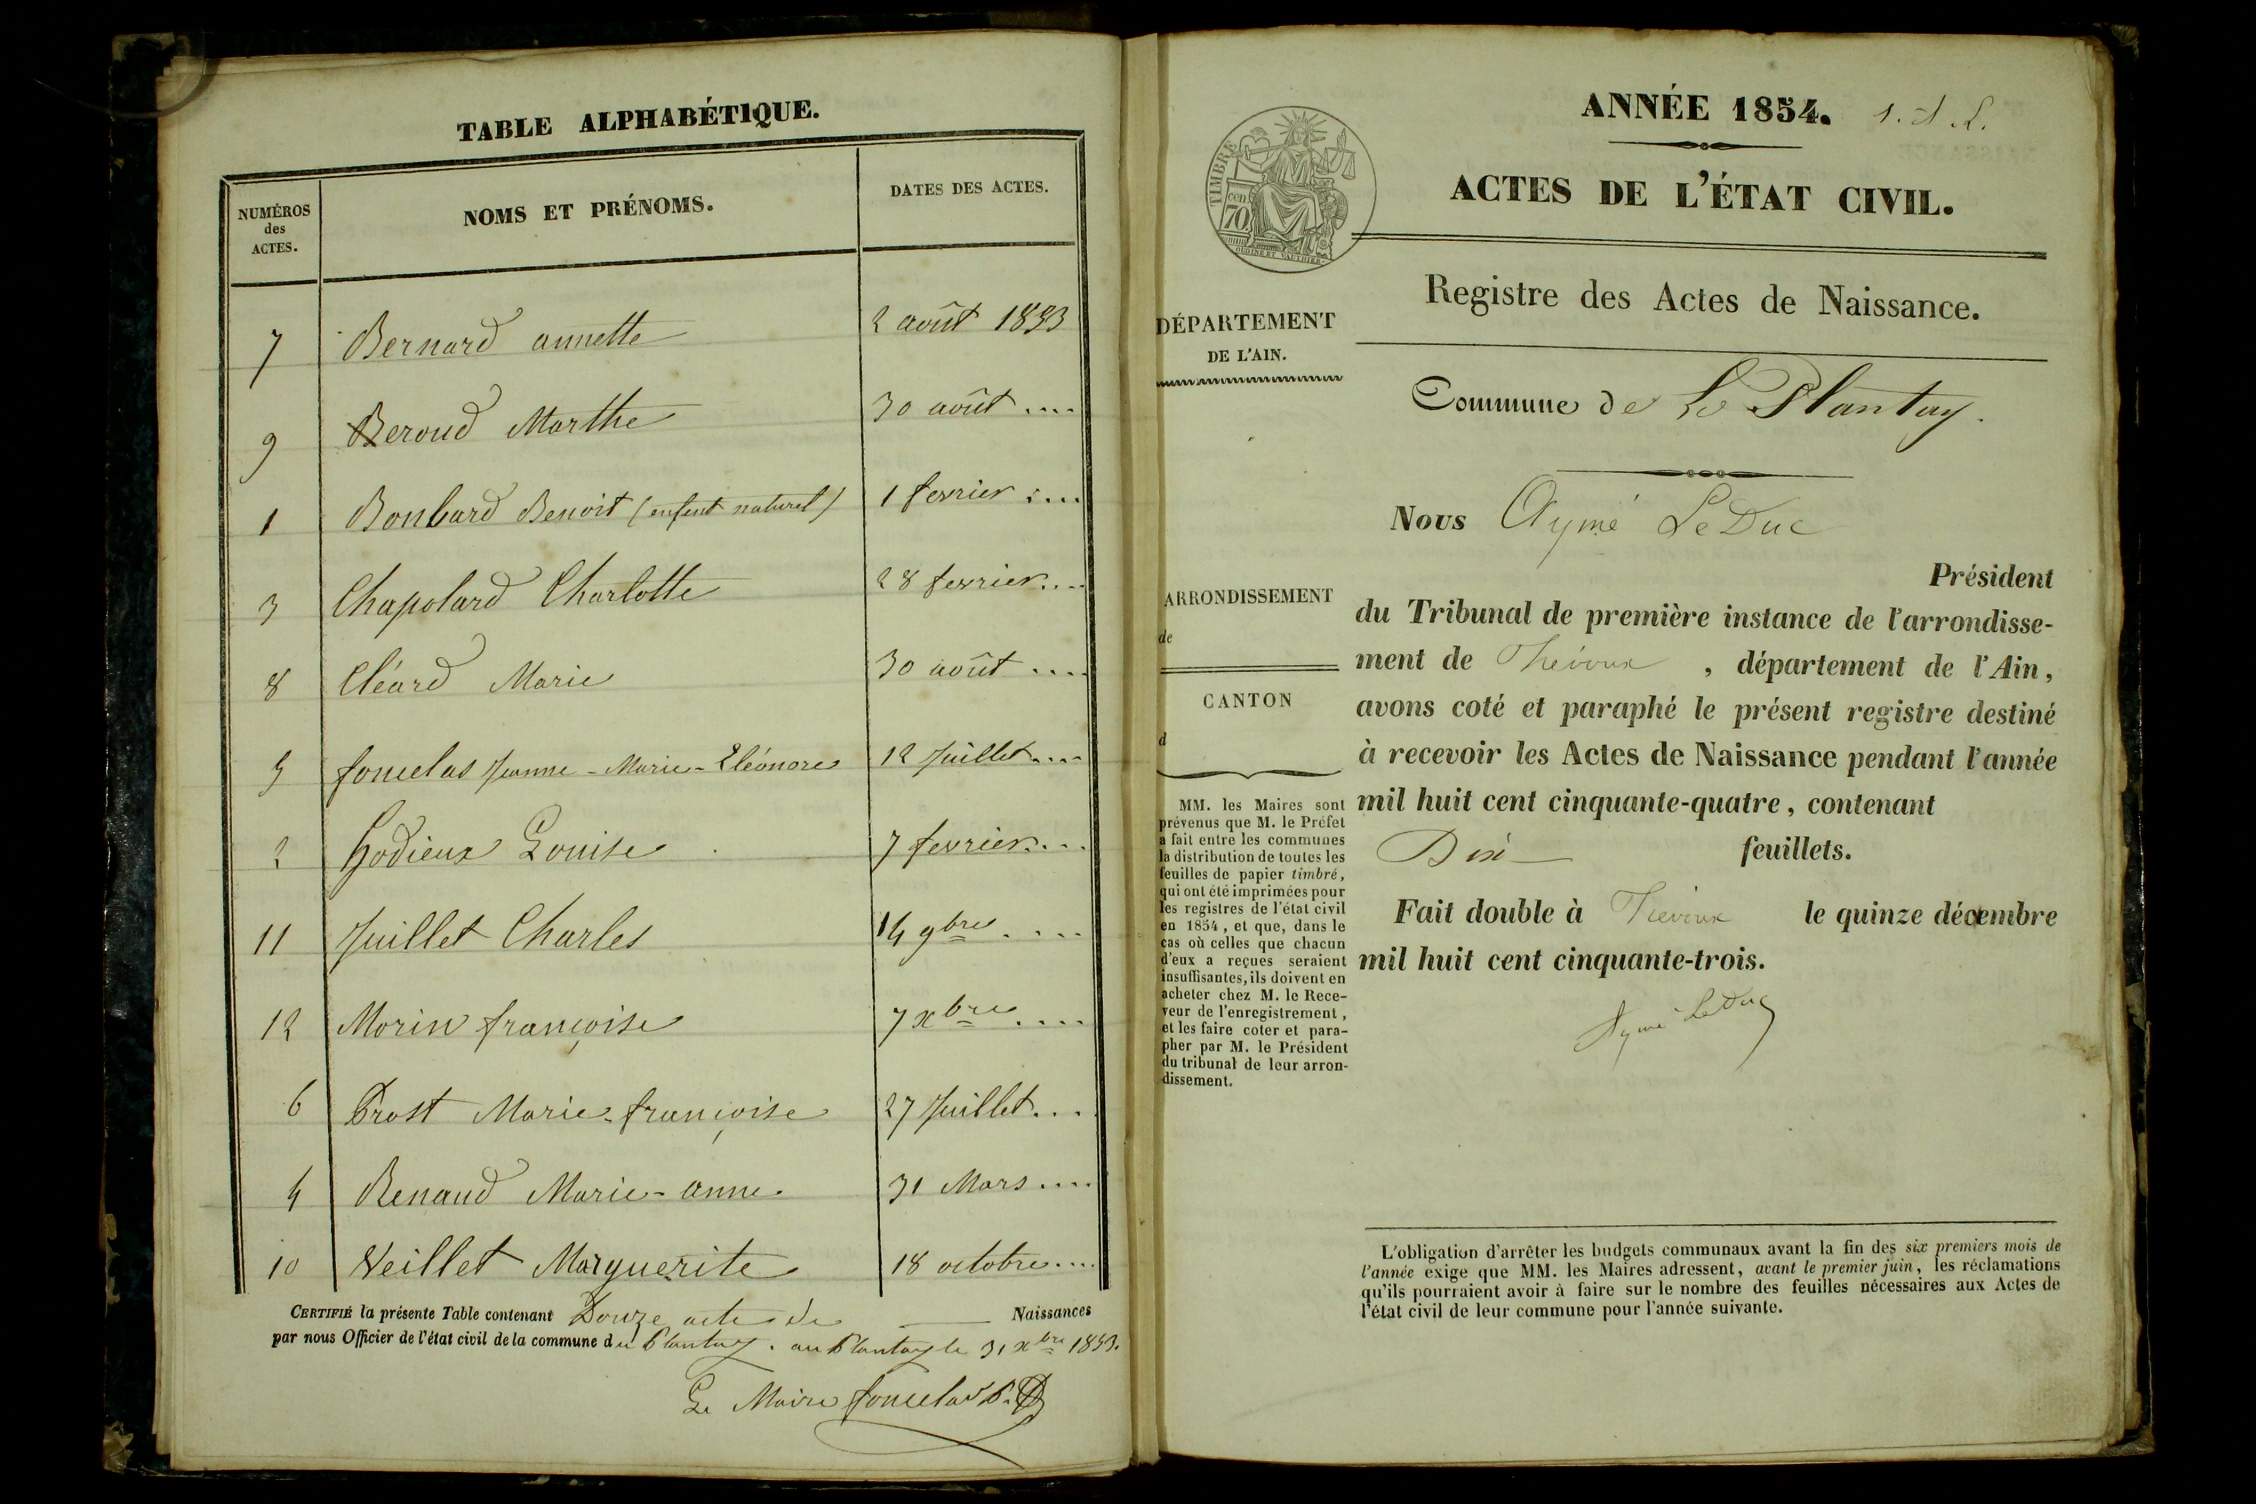 TABLE ALPHABÉTIQUE.
NUMÉROS des ACTES. NOMS ET PRÉNOMS. DATES DES ACTES.
7 Bernard annette 2 août 1853
9 Beroud Marthe 30 août ....
1 Bonbard Benoit (enfent naturel) 1 fevrier ....
3 Chapolard Charlotte 28 fevrier....
8 Cléard Marie 30 août ....
5 foncelas Jeanne-Marie-Eléonore 12 Juillet....
2 Godieux Louise 7 fevrier....
11 Juillet Charles 14 9bre ....
12 Morin françoise 7 xbre ....
6 Prost Marie-françoise 27 Juillet....
4 Renaud Marie-anne 31 Mars ....
10 Veillet Marguerite 18 octobre ....
CERTIFIÉ la présente Table contenant Douze actes de Naissances
par nous Officier de l'état civil de la commune du Plantay. au Plantay le 31 xbre 1853.
Le Maire foncelas
ANNÉE 1854. 1. A L.
ACTES DE L'ÉTAT CIVIL.
TIMBRE
CEN
70
OUDINÉ ET VAUTHIER
Registre des Actes de Naissance.
DÉPARTEMENT
DE L'AIN.
Commune de Le Plantay.
Nous Aymé LeDuc
Président
du Tribunal de première instance de l'arrondisse-
ment de Trévoux, département de l'Ain,
avons coté et paraphé le présent registre destiné
à recevoir les Actes de Naissance pendant l'année
mil huit cent cinquante-quatre, contenant
Dix feuillets.
Fait double à Trévoux le quinze décembre
mil huit cent cinquante-trois.
Aymé LeDuc
ARRONDISSEMENT
de
CANTON
d
MM. les Maires sont
prévenus que M. le Préfet
a fait entre les communes
la distribution de toutes les
feuilles de papier timbré,
qui ont été imprimées pour
les registres de l'état civil
en 1854, et que, dans le
cas où celles que chacun
d'eux a reçues seraient
insuffisantes, ils doivent en
acheter chez M. le Rece-
veur de l'enregistrement,
et les faire coter et para-
pher par M. le Président
du tribunal de leur arron-
dissement.
L'obligation d'arrêter les budgets communaux avant la fin des six premiers mois de
l'année exige que MM. les Maires adressent, avant le premier juin, les réclamations
qu'ils pourraient avoir à faire sur le nombre des feuilles nécessaires aux Actes de
l'état civil de leur commune pour l'année suivante.